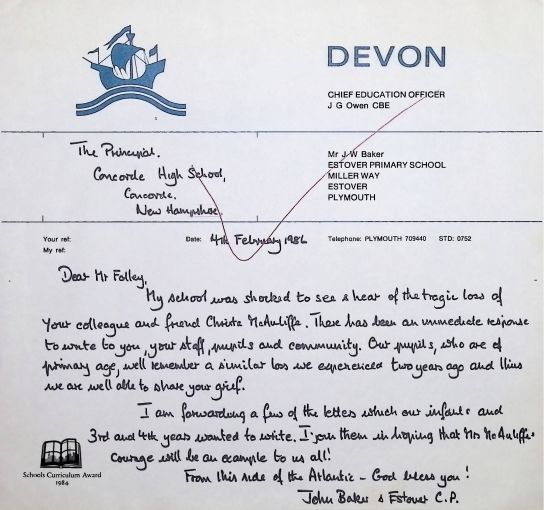 DEVON
CHIEF EDUCATION OFFICER
J G Owen CBE
The Principal.
Concorde High School,
Concorde.
New Hampshire.
Mr J W Baker
ESTOVER PRIMARY SCHOOL
MILLER WAY
ESTOVER
PLYMOUTH
Your ref:
My ref:
Date: 4th February 1986
Telephone: PLYMOUTH 709440 STD: 0752
Dear Mr Folley,
My school was shocked to see & hear of the tragic loss of
your colleague and friend Christa McAuliffe. There has been an immediate response
to write to you, your staff, pupils and community. Our pupils, who are of
primary age, well remember a similar loss we experienced two years ago and thus
we are well able to share your grief.
I am forwarding a few of the letters which our infants and
3rd and 4th years wanted to write. I join them in hoping that Mrs McAuliffe's
courage will be an example to us all!
From this side of the Atlantic - God bless you!
John Baker & Estover C.P.
Schools Curriculum Award
1984